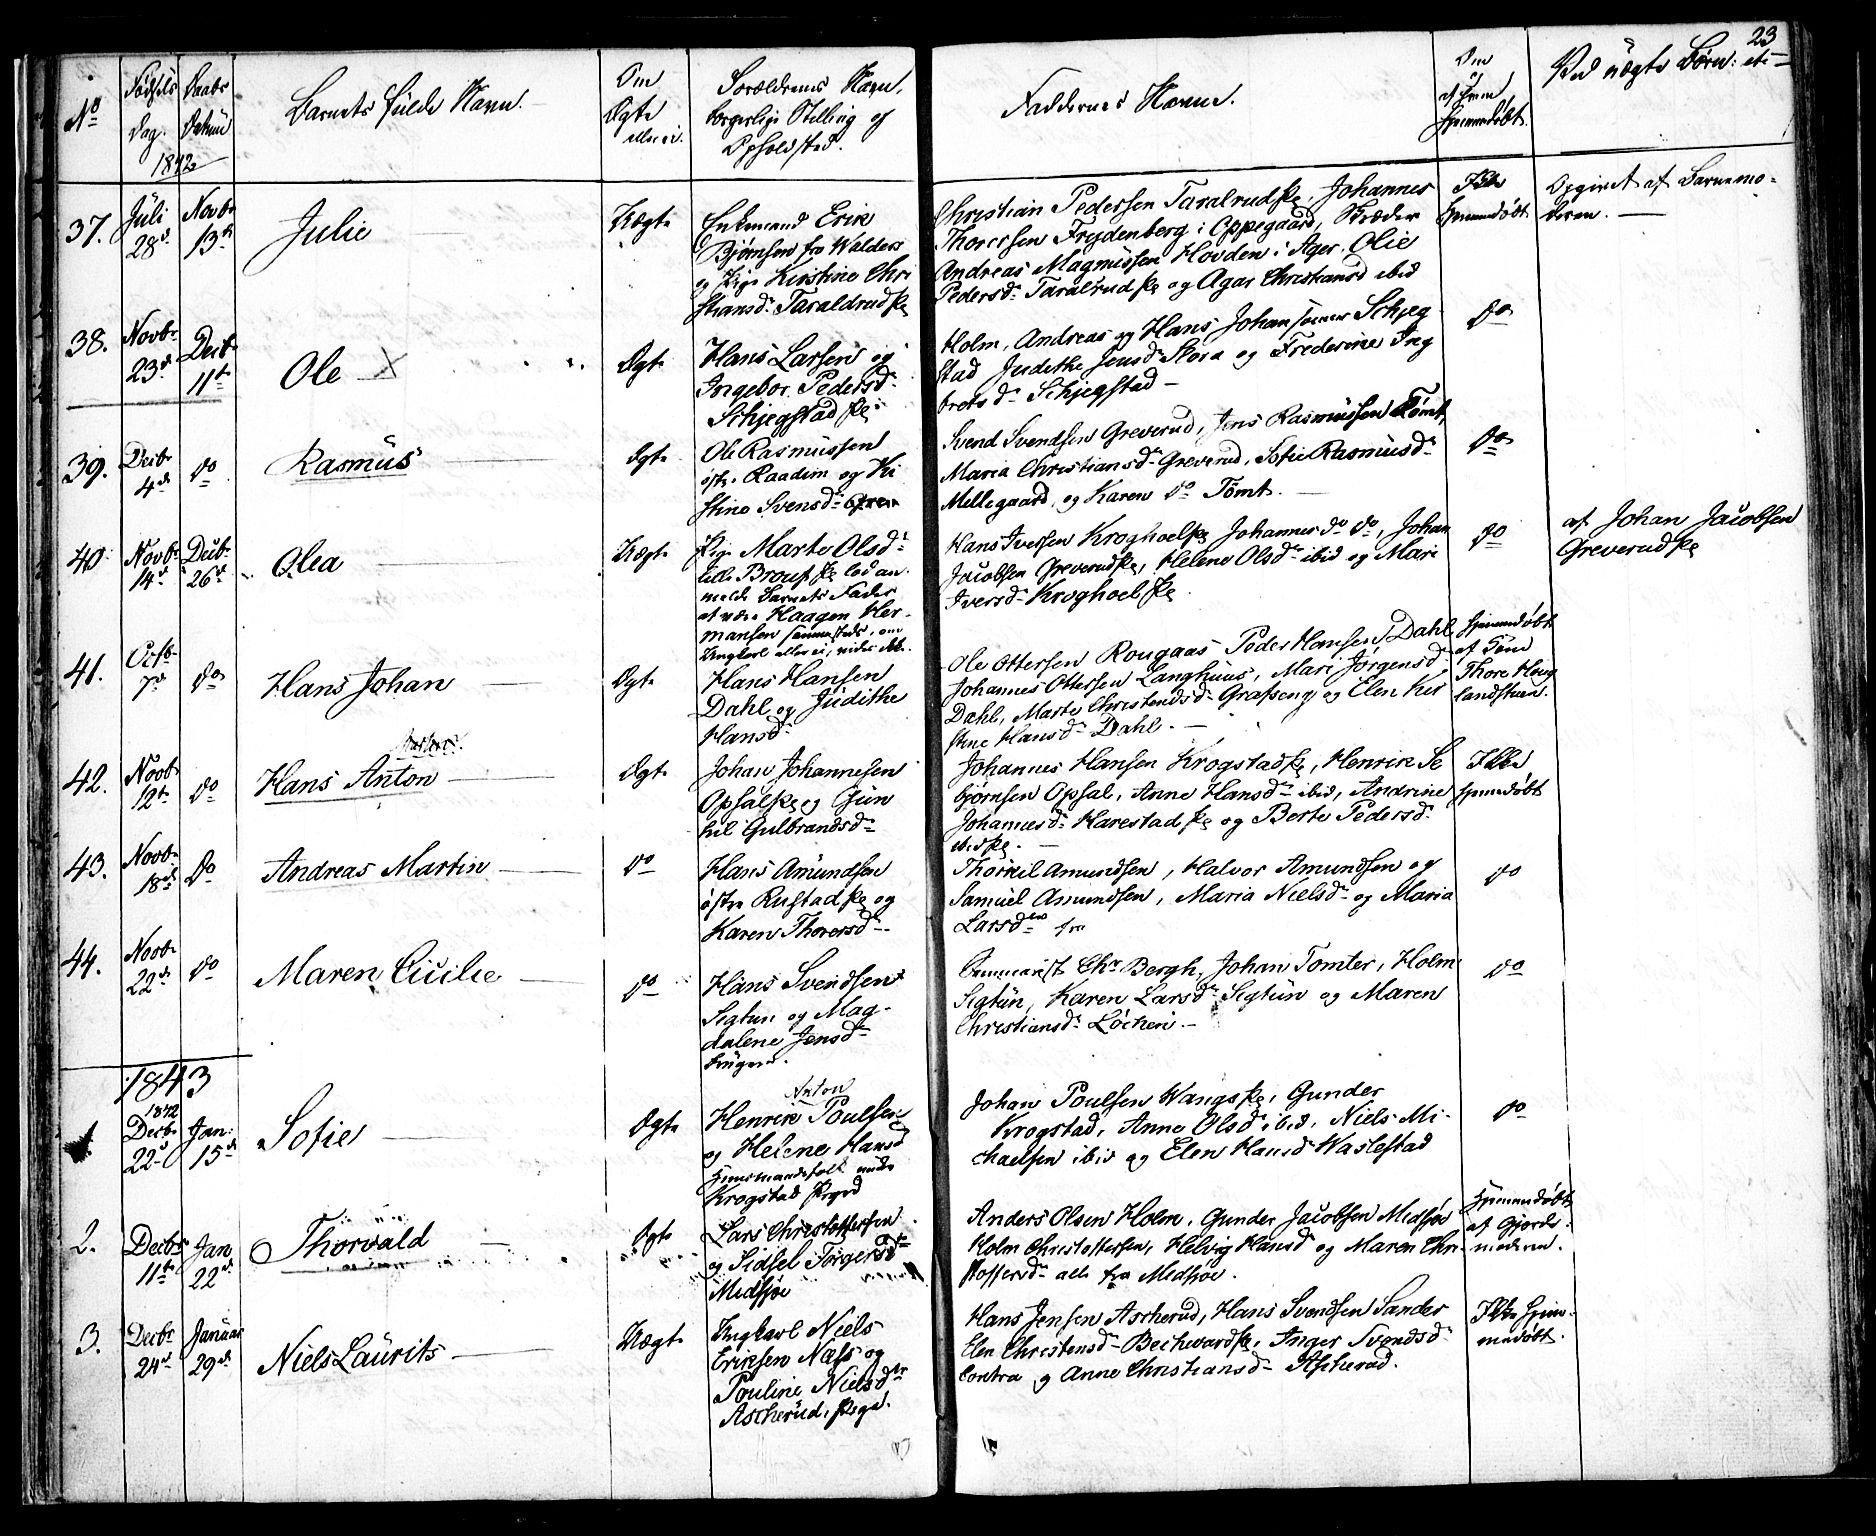 23
No
Fødsels
Dag.
1842
Daabs
Datum
Barnets fulde Navn.
Om
Ægte
eller ei.
Forældrenes Navn,
borgerlige Stilling og
Opholdsted.
Faddernes Navne.
Om
Hjemmedøbt.
Ved uægte Børn: etc
37.
Juli
28d
Novbr
13d
Julie
Uægte
Enkemand Erik
Bjørnsen fra Walders
og Pige Kirstine Chri
stiansdr Taraldrud
Christian Pedersen Taralrud, Johannes
Thoresen Frydenberg i Oppegaard, Skræder
Andreas Magnussen Hovden i Ager, Olie
Pedersdr Taralrud og Agar Christiansd ibid
Ikke
hjemmedøbt
Opgivet af Barnemo-
deren.
38.
Novbr
23d
Decbr
11te
Ole X
Ægte
Hans Larsen og
Ingebor Pedersdr
Schjegstad
Holm, Andreas og Hans Johansønner Schjeg
stad Judithe Jensdr Skora og Frederine Ing
bretsdr Schjegstad
do
39.
Decbr
4de
do
Rasmus
Ægte
Ole Rasmussen
østre Raadim og Ki
stine Svensdr
Svend Svendsen Greverud, Jens Rasmussen Tømt,
Maria Christiansdr Greverud, Sofie Rasmusdr
Mellegaard, og Karen do Tømt.
do
40.
Novbr
14d
Decbr
26d
Olea
Uægte
Pige Marte Olsdr
lille Brout lod an
melde Barnets Fader
at være Haagen Her-
mansen sammesteds, om
Ungkarl eller ei, vides ikke.
Hans Iversen Kroghoel, Johannes do do, Johan
Jacobsen Greverud, Helene Olsdr ibid og Mari
Iversdr Kroghoel
do
af Johan Jacobsen
Greverud
41.
Octbr
7d
do
Hans Johan
Ægte
Hans Hansen
Dahl og Judithe
Hansdr
Ole Ottersen Rougaas Peder Hansen Dahl
Johannes Ottersen Langhuus, Mari Jørgensdr
Dahl, Marte Christensdr Grafseng og Elen Kir
stine Hansdr Dahl.
hjemmedøbt
af
Thore Houg
landstuen.
42.
Novbr
12te
do
Hans Anton
Ægte
Johan Johannesen
Opsal og Gun
hil Gulbrandsdr
Johannes Hansen Krogstad, Henrik Se
bjørnsen Opsal, Anne Hansdr ibid, Andrine
Johannesdr Harestad og Berte Pedersdr
ibid
Ikke
hjemmedøbt
43.
Novbr
18de
do
Andreas Martin
do
Hans Amundsen
østre Rustad og
Karen Thorersdr
Thorkil Amundsen, Halvor Amundsen og
Samuel Amundsen, Maria Nielsdr og Maria
Larsdr fra
do
44.
Novbr
22de
do
Maren Cicilie
do
Hans Svendsen
Sigtun og Mag-
dalene Jensdr
Chr Bergh, Johan Tomter, Holm
Sigtun, Karen Larsdr Sigtun og Maren
Christiansdr Løchen.
do
1843
1
1842
Decbr
22d
Jan:
15de
Sofie
Ægte
Anton
Henrik Poulsen
og Helene Hansd
Huusmandsfolk under
Krogstad
Johan Poulsen Wangs, Gunder
Krogstad, Anne Olsd ibid, Niels Mi-
chaelsen ibid og Elen Hansd Waslestad
do
2.
Decbr
11te
Jan
22d
Thorvald
Ægte
Lars Christoffersen
og Sidsel Jørgensdr
Midsjøe
Anders Olsen Holm, Gunder Jacobsen Midsjøe
Holm Christoffersen, Helvig Hansd og Maren Chri-
stoffersdr alle fra Midsjøe.
Hjemmedøbt
af Gjorde-
moderen.
3.
Decbr
24d
Januar
29de
Niels Laurits
Uægte
Ungkarl Niels
Eriksen Næss og
Pouline Nielsdr
Ascherud,
Hans Jensen Ascherud, Hans Svendsen Sander
Elen Christensdr Bechevard, Inger Svendsdr
Contra og Anne Christiansdr Ascherud.
Ikke Hjem-
medøbt.